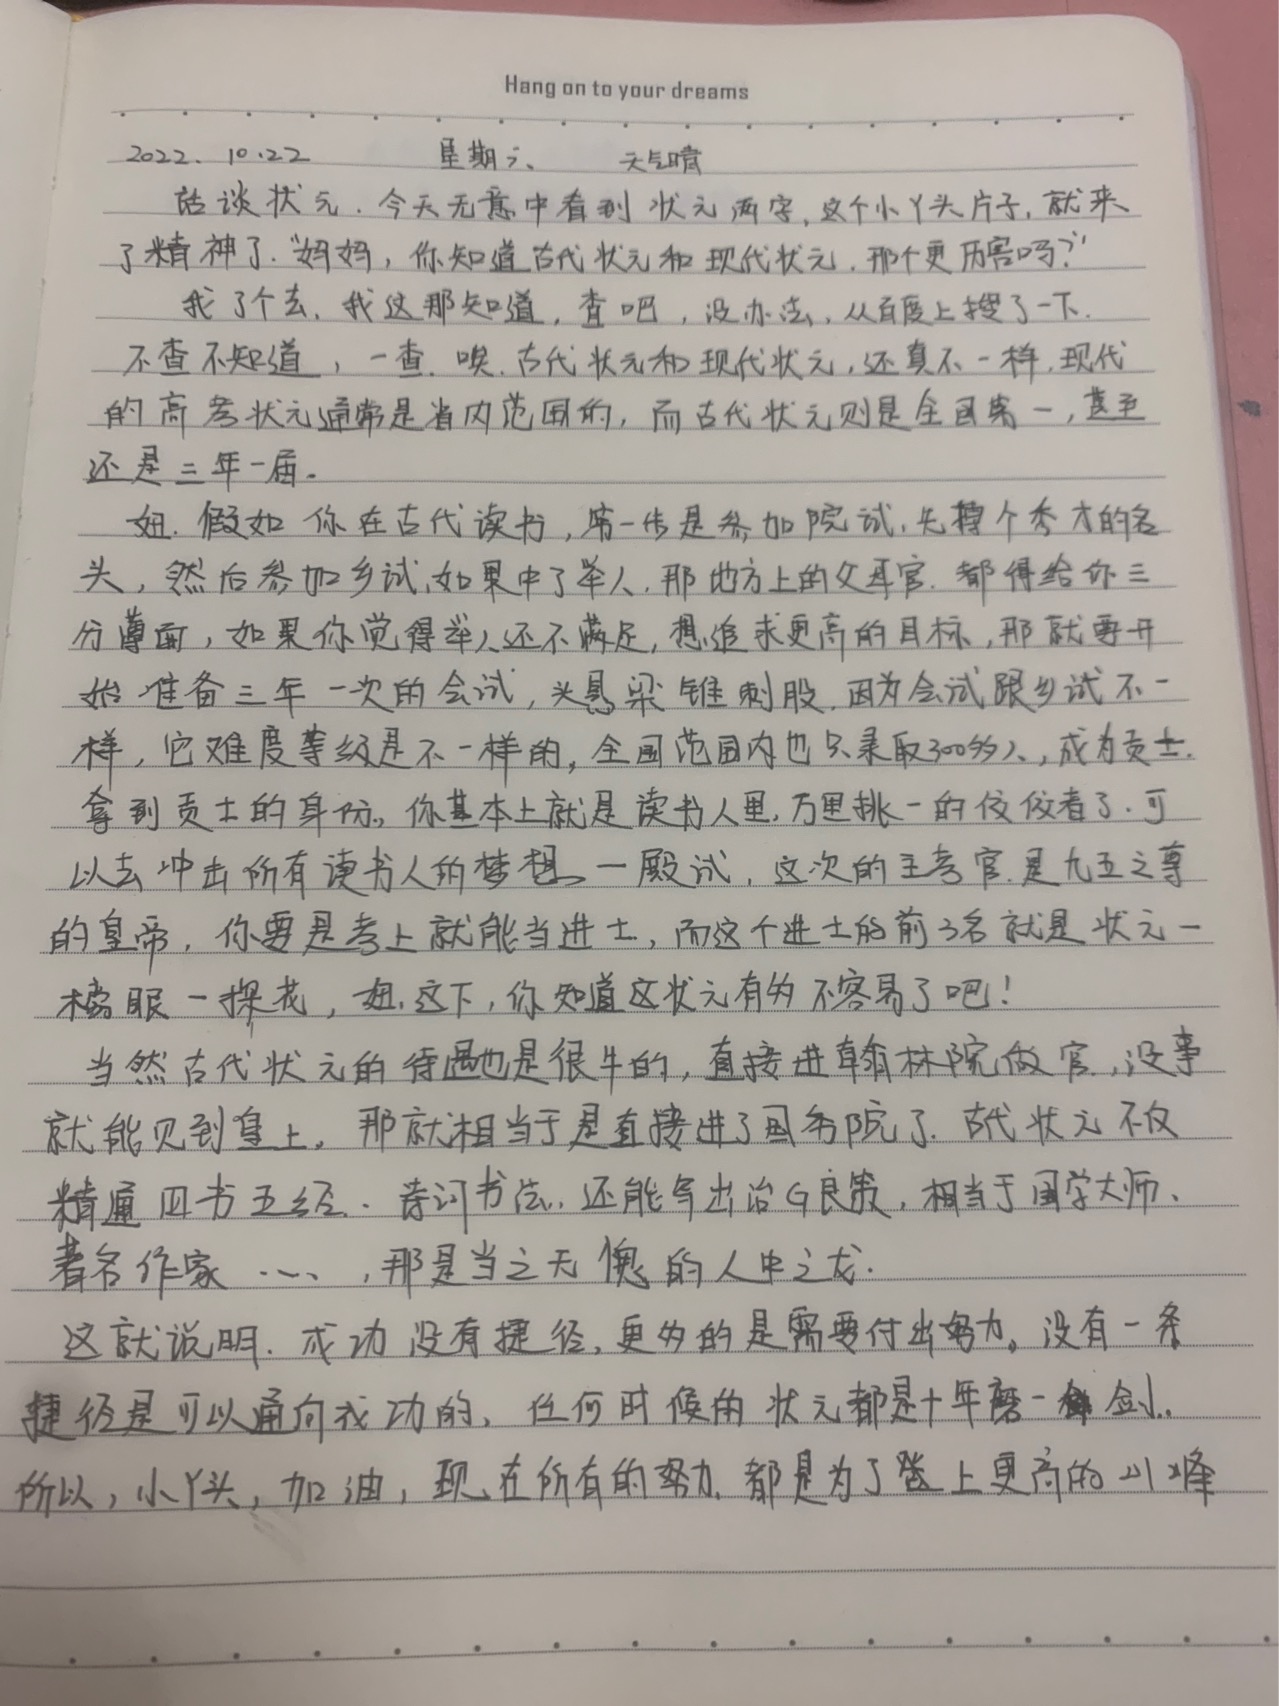 Hang on to your dreams
2022.10.22 星期六、 天气晴
话谈状元.今天无意中看到状元两字,这个小丫头片子,就来
了精神了.“妈妈,你知道古代状元和现代状元.那个更历害吗?”
我了个去,我这那知道,查吧,没办法,从百度上搜了一下.
不查不知道,一查.唉.古代状元和现代状元,还真不一样,现代
的高考状元通常是省内范围的,而古代状元则是全国第一,甚至
还是三年一届。
妞.假如你在古代读书,第一步是参加院试,先博个秀才的名
头,然后参加乡试,如果中了举人,那地方上的父母官.都得给你三
分薄面,如果你觉得举人还不满足,想追求更高的目标,那就要开
始准备三年一次的会试,头悬梁锥刺股.因为会试跟乡试不一
样,它难度等级是不一样的,全国范围内也只录取300多人,成为贡士.
拿到贡士的身份。你基本上就是读书人里,万里挑一的佼佼者了.可
以去冲击所有读书人的梦想一殿试,这次的主考官.是九五之尊
的皇帝,你要是考上就能当进士,而这个进士的前3名就是状元一
榜眼一探花,妞,这下,你知道这状元有多不容易了吧!
当然古代状元的待遇也是很牛的,直接进翰林院做官,没事
就能见到皇上,那就相当于是直接进了国务院了.古代状元不仅
精通四书五经.诗词书法,还能写出治G良策,相当于国学大师、
著名作家……,那是当之无愧的人中之龙.
这就说明.成功没有捷径,更多的是需要付出努力。没有一条
捷径是可以通向成功的,任何时候的状元都是十年磨一剑.
所以,小丫头,加油,现在所有的努力.都是为了登上更高的山峰